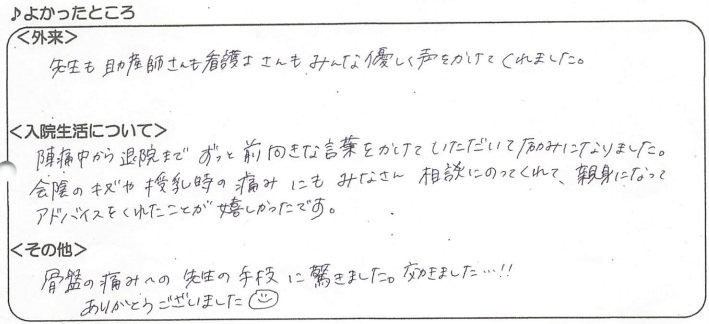 ♪よかったところ
<外来>
先生も助産師さんも看護士さんもみんな優しく声をかけてくれました。
<入院生活について>
陣痛中から退院までずっと前向きな言葉をかけていただいて励みになりました。
会陰のキズや授乳時の痛みにもみなさん相談にのってくれて、親身になって
アドバイスをくれたことが嬉しかったです。
<その他>
骨盤の痛みへの先生の手技に驚きました。効きました…!!
ありがとうございました☺